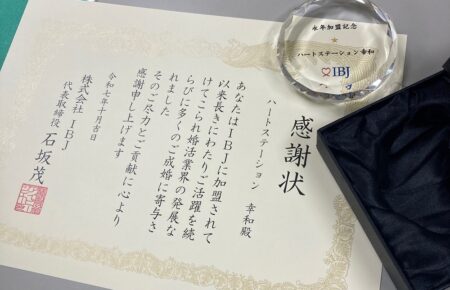 感謝状
ハートステーション 幸和殿
あなたはIBJに加盟されて
以来長きにわたりご活躍を続
けてこられ婚活業界の発展な
らびに多くのご成婚に寄与さ
れました
そのご尽力とご貢献に心より
感謝申し上げます
令和七年十月吉日
株式会社IBJ
代表取締役 石坂茂
永年加盟記念
ハートステーション幸和
IBJ